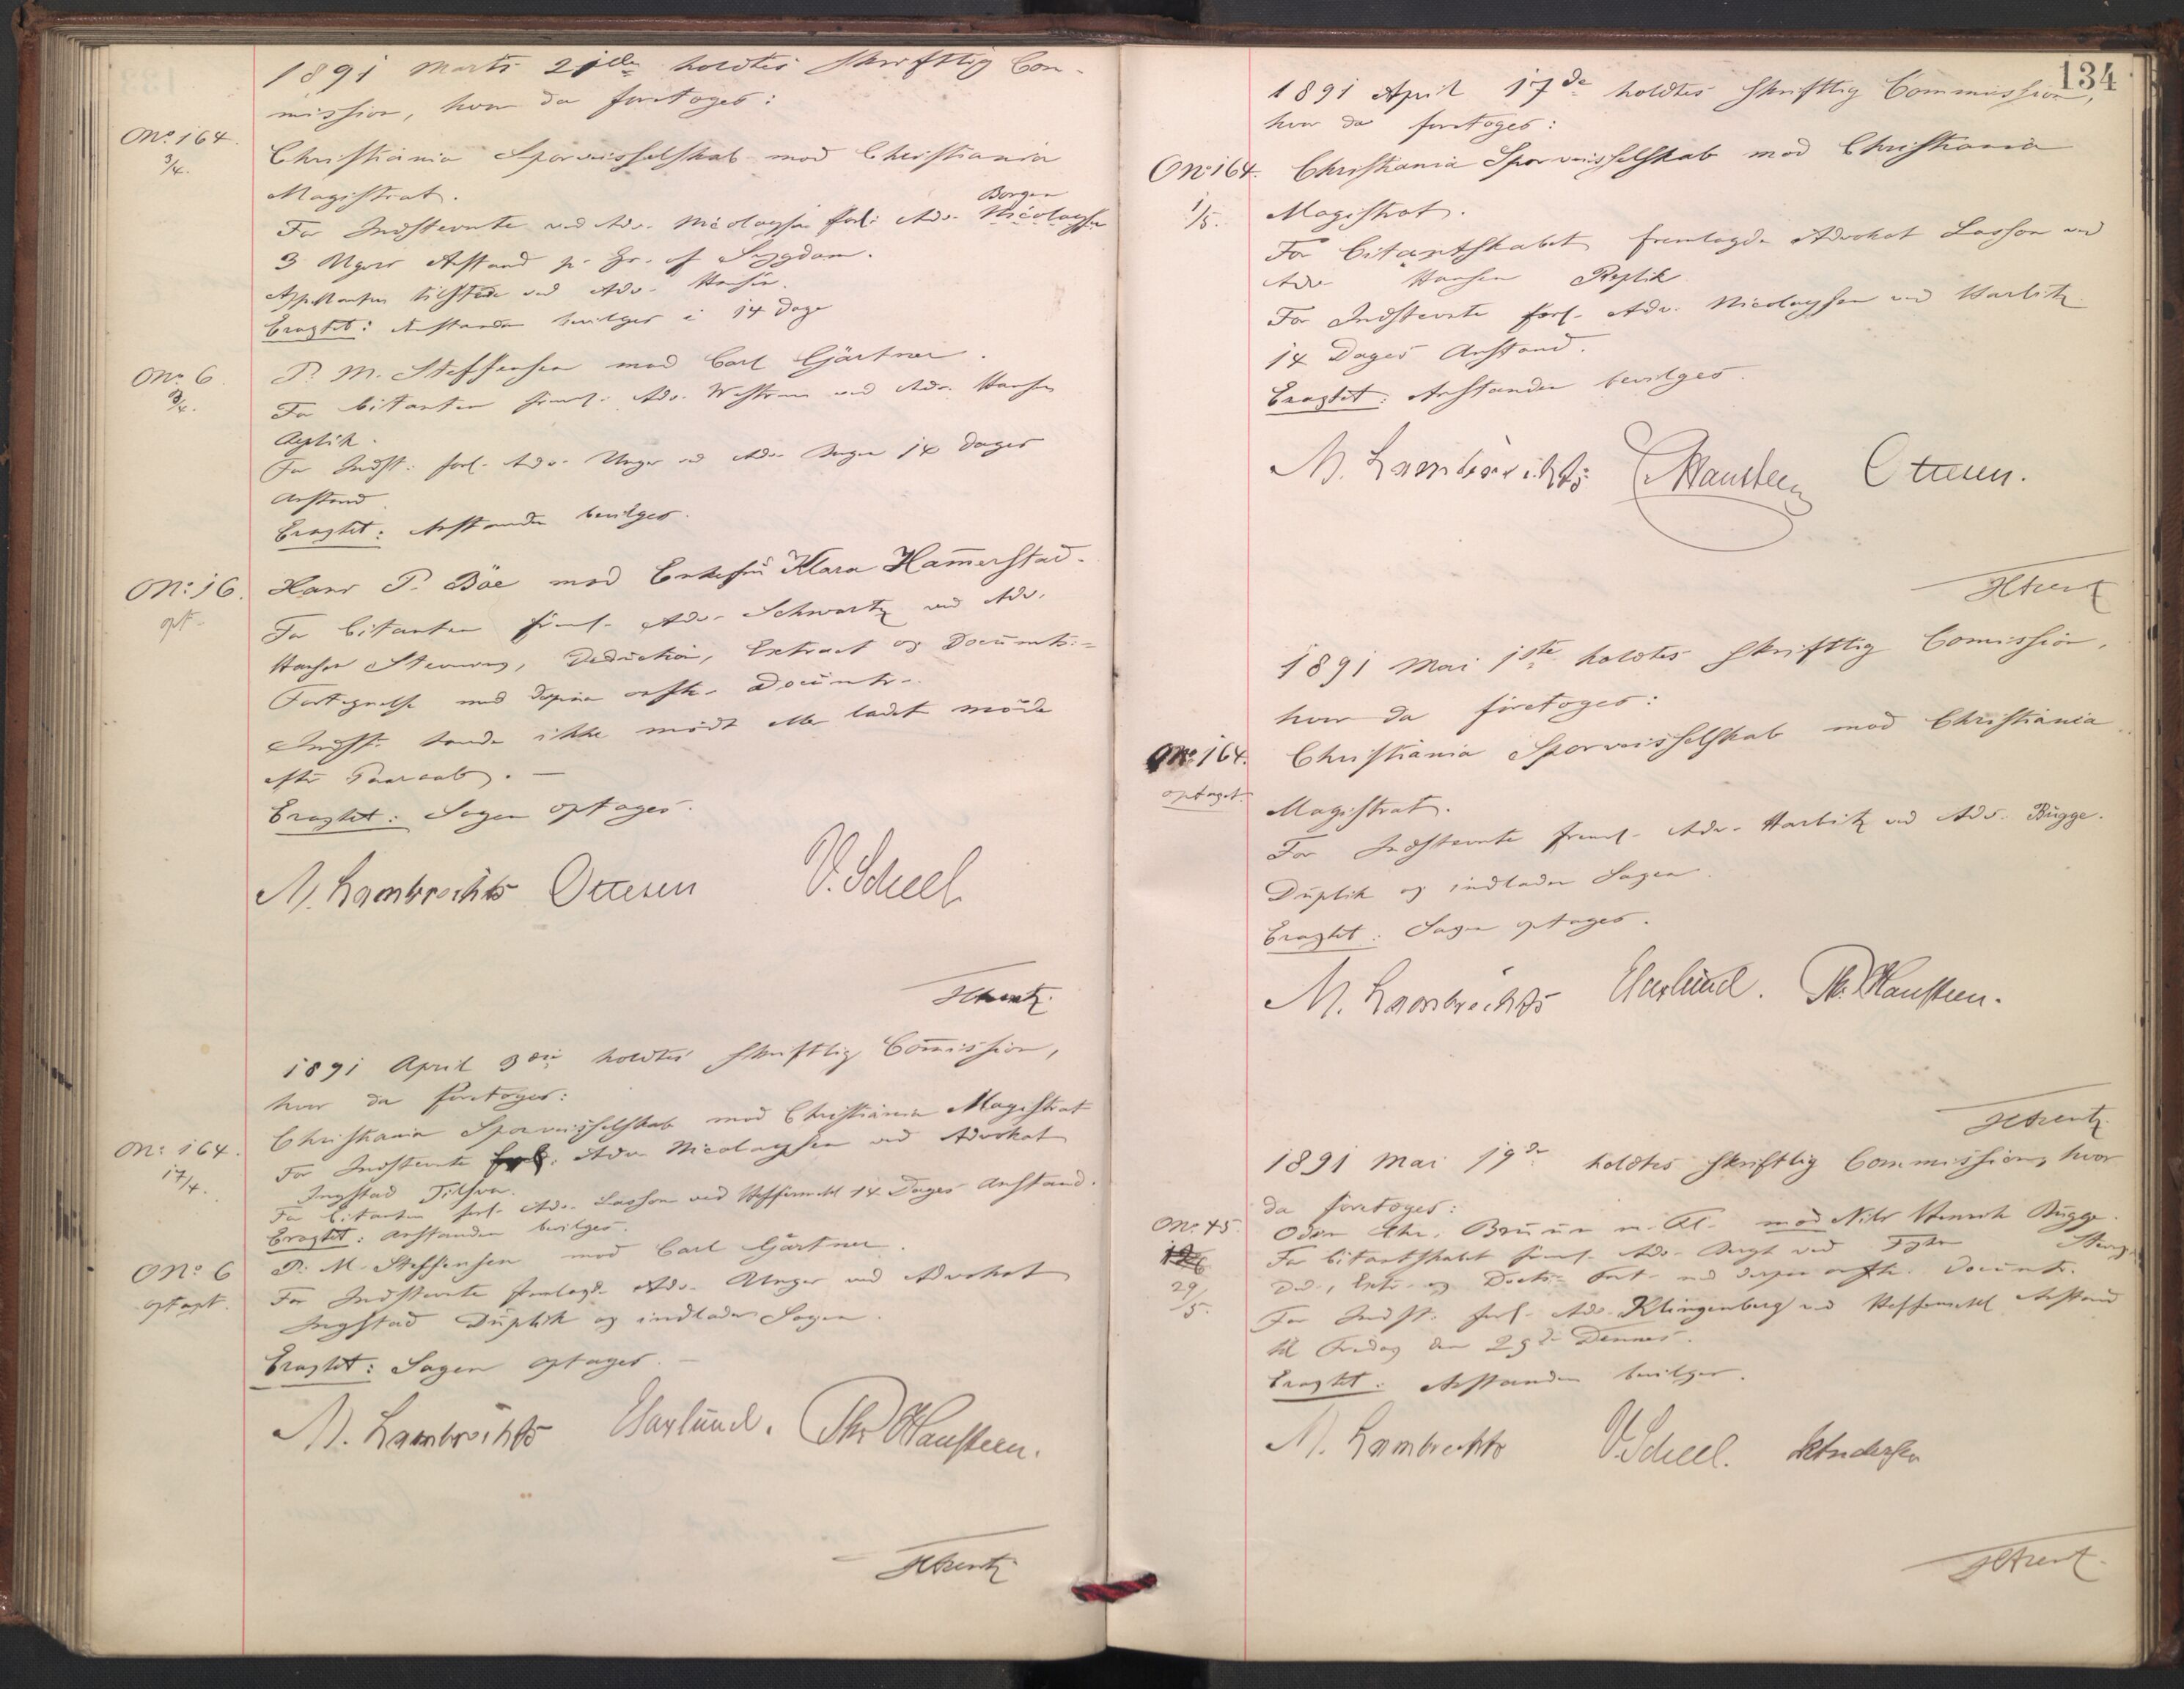 1891 Marts 21de holdtes skriftlig Com-
mission, hvor da foretoges:
No. 164.
3/4.
Christiania Sporveisselskab mod Christiania
Magistrat.
Borgen
For Indstevnte ved Adv. Nicolaysen forl. Adv. Nicolaysen
3 Ugers Anstand p. Gr. af Sygdom.
Appellanten tilstede ved Adv. Hansen.
Eragtet: Anstanden bevilges i 14 Dage
No. 6.
3/4.
P. M. Steffensen mod Carl Gärtner.
For Citanten freml. Adv. ved Adv. Hansen
Replik.
For Indst. forl. Adv. Unger ved Adv. 14 Dages
Anstand.
Eragtet: Anstanden bevilges.
No. 16.
opt.
Hans P. Böe mod Enkefru Klara Hammerstad.
For Citanten freml. Adv. Schwartz ved Adv.
Hansen Stevning, Deduction, Extract og Documts.-
Fortegnelse med deri ansk. Documtr.
Indst. havde ikke mödt eller ladet möde
efter Paaraab. —
Eragtet: Sagen optages.
M. Lambrechts Ottesen V. Scheel
1891 April 3die holdtes skriftlig Commission,
hvor da foretoges:
No. 164.
17/4.
Christiania Sporveisselskab mod Christiania Magistrat
For Indstevnte forl. Adv. Nicolaysen ved Advokat
Ingstad Tilsvar.
For Citanten forl. Adv. Lasson ved Steffens til 14 Dages Anstand.
Eragtet: Anstanden bevilges.
No. 6
optagt.
P. M. Steffensen mod Carl Gärtner.
For Indstevnte fremlagde Adv. Unger ved Advokat
Ingstad Duplik og indlader Sagen.
Eragtet: Sagen optages.
M. Lambrechts Th. Hansteen.
134
1891 April 17de holdtes skriftlig Commission,
hvor da foretoges:
No 164.
1/5.
Christiania Sporveisselskab mod Christiania
Magistrat.
For Citantskabet fremlagde Advokat Lasson ved
Adv. Hansen Replik.
For Indstevnte forl. Adv. Nicolaysen ved Harbitz
14 Dages Anstand.
Eragtet: Anstanden bevilges.
M. Lambrechts Hansteen Ottesen.
1891 Mai 1ste holdtes skriftlig Comission,
hvor da foretoges:
No. 164.
optaget.
Christiania Sporveisselskab mod Christiania
Magistrat.
For Indstevnte freml. Adv. Harbitz ved Adv. Bugge.
Duplik og indlader Sagen.
Eragtet: Sagen optages.
M. Lambrechts Th. Hansteen.
1891 Mai 19de holdtes skriftlig Commission, hvor
da foretoges:
No. 45.
29/5.
Odin Chr. Bruun m. Fl. mod Nils Henrik Bugge.
For Citantskabet freml. Adv. ved
Ded., Extr. og Docts. Fort. med deri ansk. Documtr.
For Indst. forl. Adv. Klingenberg ved Anstand
til Fredag den 29de Dennes.
Eragtet: Anstanden bevilges.
M. Lambrechts V. Scheel. Andersen